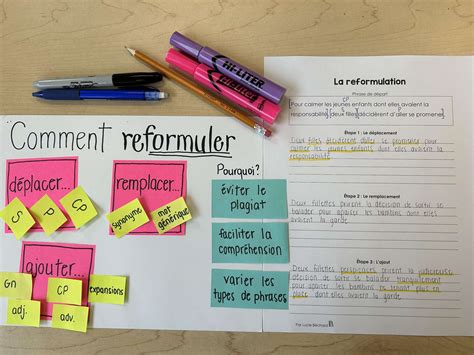 HI-LITER
Comment reformuler
déplacer...
S
P
CP
remplacer...
synonyme
mot générique
ajouter...
Gn
CP
expansions
adj.
adv.
Pourquoi?
éviter le
plagiat
faciliter la
compréhension
varier les
types de phrases
La reformulation
Phrase de départ
CP
[Pour calmer les jeunes enfants dont elles avaient la
S P
responsabilité], [deux filles] [décidèrent d'aller se promener].
Étape 1 : Le déplacement
Deux filles décidèrent d'aller se promener pour
calmer les jeunes enfants dont elles avaient la
responsabilité.
Étape 2 : Le remplacement
Deux fillettes prirent la décision de sortir se
balader pour apaiser les bambins dont elles
avaient la garde
Étape 3 : L'ajout
Deux fillettes perspicaces prirent la judicieuse
décision de sortir se balader tranquillement
pour apaiser les bambins ne tenant plus en
place dont elles avaient la garde
Par Lucie